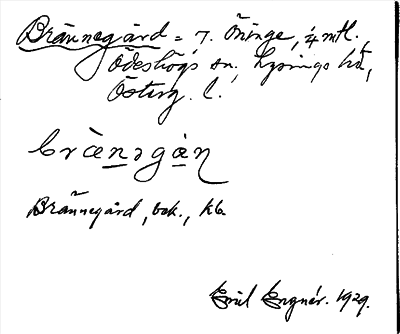 Brännegård = 7. Öninge, 1/4 mtl.
Ödeshögs sn, Lysings hd,
Österg. l.
brän̲əgàṇ
Brännegård, bok., kb
Emil Engnér. 1929.